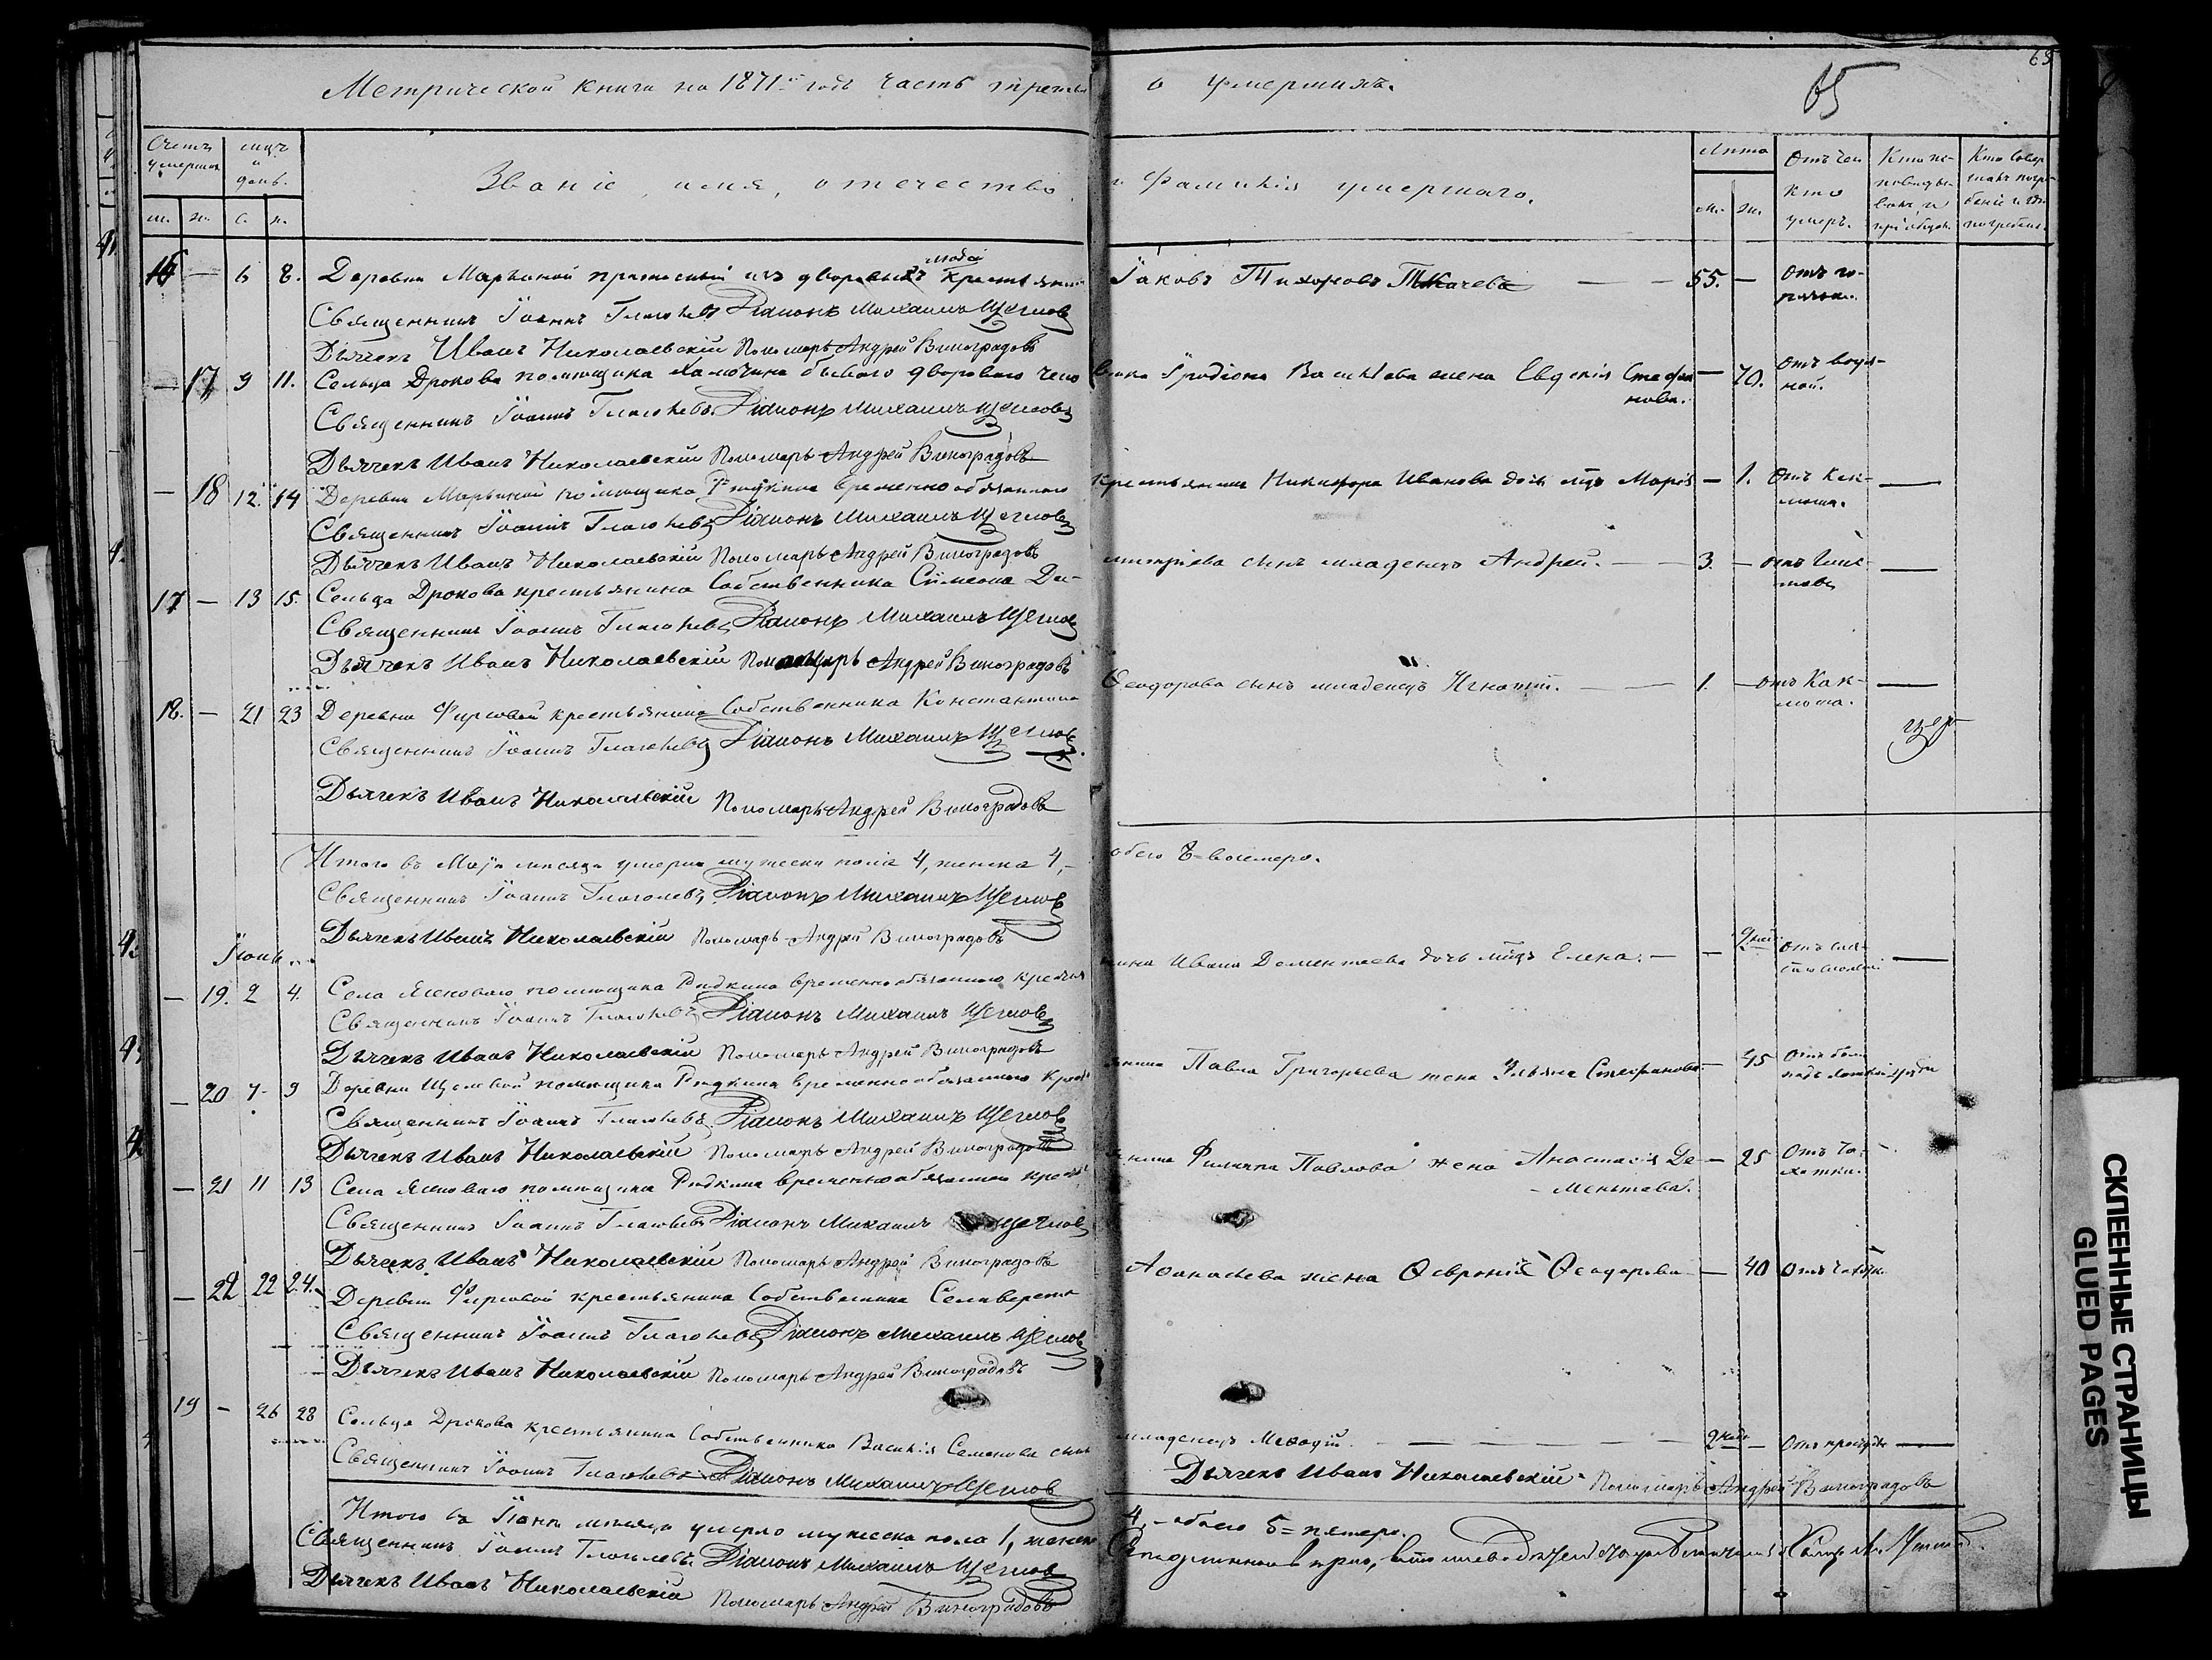 Метрической книги на 1871й годъ часть третья о умершихъ.
65
65
Счетъ умершихъ
мцъ и день.
Званіе, имя, отечество и фамилія умершаго.
Лѣта
Отъ чего кто умеръ.
Кто исповѣдывалъ и пріобщалъ.
Кто совершалъ погребеніе и гдѣ погребены.
м. ж. с. п. м. ж.
16 — 6 8. Деревни Марьиной изъ дворовыхъ крестьянинъ Іаковъ Тихоновъ Ткачевъ — — 55. — Отъ горячки.
Священникъ Іоаннъ Глаголевъ Діаконъ Михаилъ Щегловъ
Дьячекъ Иванъ Николаевскій Пономарь Андрей Виноградовъ
— 17 9 11. Сельца Дрокова помѣщика бывшаго двороваго человѣка Иродіона Васильева жена Евдокія Стефанова. — 70. Отъ водяной.
Священникъ Іоаннъ Глаголевъ Діаконъ Михаилъ Щегловъ
Дьячекъ Иванъ Николаевскій Пономарь Андрей Виноградовъ
— 18 12. 14 Деревни Марьиной помѣщика Ридкина временнообязаннаго крестьянина Никифора Иванова дочь мцъ Марія — 1. Отъ коклюша. —
Священникъ Іоаннъ Глаголевъ Діаконъ Михаилъ Щегловъ
Дьячекъ Иванъ Николаевскій Пономарь Андрей Виноградовъ
17 — 13 15. Сельца Дрокова крестьянина собственника Симеона Димитріева сынъ младенецъ Андрей. — — 3. — отъ —
Священникъ Іоаннъ Глаголевъ Діаконъ Михаилъ Щегловъ
Дьячекъ Иванъ Николаевскій Пономарь Андрей Виноградовъ
18. — 21 23 Деревни Фирсовой крестьянина собственника Константина Ѳеодорова сынъ младенецъ Игнатій. — — 1. — отъ коклюша. —
Священникъ Іоаннъ Глаголевъ Діаконъ Михаилъ Щегловъ
Дьячекъ Иванъ Николаевскій Пономарь Андрей Виноградовъ
Итого въ Маѣ мѣсяцѣ умерло мужеска пола 4, женска 4, обоего 8=восмеро.
Священникъ Іоаннъ Глаголевъ Діаконъ Михаилъ Щегловъ
Дьячекъ Иванъ Николаевскій Пономарь Андрей Виноградовъ
Іюнь
— 19. 2 4. Села Ясноваго помѣщика Ридкина временнообязаннаго крестьянина Ивана Дементьева дочь мцъ Елена. — — —
Священникъ Іоаннъ Глаголевъ Діаконъ Михаилъ Щегловъ
Дьячекъ Иванъ Николаевскій Пономарь Андрей Виноградовъ
— 20 7 9 Деревни помѣщика Ридкина временнообязаннаго крестьянина Павла Григорьева жена Ульяна Стефанова — 45 Отъ
Священникъ Іоаннъ Глаголевъ Діаконъ Михаилъ Щегловъ
Дьячекъ Иванъ Николаевскій Пономарь Андрей Виноградовъ
— 21 11 13 Села Ясноваго помѣщика Ридкина временнообязаннаго крестьянина Филиппа Павлова жена Анастасія Дементьева. — 25 Отъ чахотки.
Священникъ Іоаннъ Глаголевъ Діаконъ Михаилъ Щегловъ
Дьячекъ Иванъ Николаевскій Пономарь Андрей Виноградовъ
— 22 22 24. Деревни Фирсовой крестьянина собственника Селиверста Аѳанасьева жена Ѳевронія Ѳеодорова — 40 Отъ чахотки
Священникъ Іоаннъ Глаголевъ Діаконъ Михаилъ Щегловъ
Дьячекъ Иванъ Николаевскій Пономарь Андрей Виноградовъ
19 — 26 28 Сельца Дрокова крестьянина собственника Василія Семенова сынъ младенецъ Меѳодій. — — — 2 — Отъ простуды —
Священникъ Іоаннъ Глаголевъ Діаконъ Михаилъ Щегловъ Дьячекъ Иванъ Николаевскій Пономарь Андрей Виноградовъ
Итого въ Іюнѣ мѣсяцѣ умерло мужеска пола 1, женска 4, — обоего 5=пятеро.
Священникъ Іоаннъ Глаголевъ Діаконъ Михаилъ Щегловъ
Дьячекъ Иванъ Николаевскій Пономарь Андрей Виноградовъ
СКЛЕЕННЫЕ СТРАНИЦЫ
GLUED PAGES